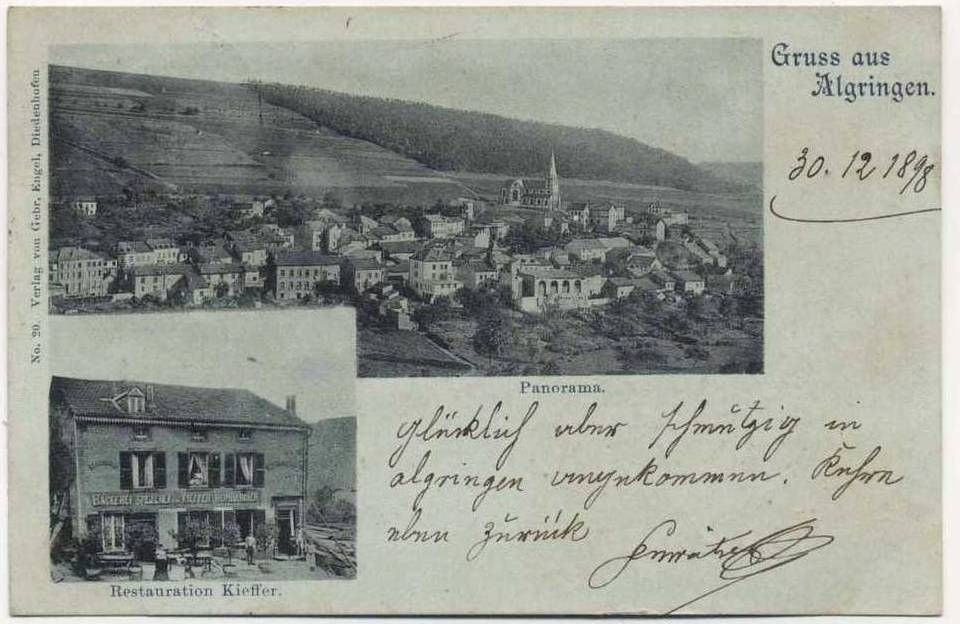 Gruss aus
Algringen.
30. 12 1898
No. 20. Verlag von Gebr. Engel, Diedenhofen
Panorama.
glücklich aber schmutzig in
algringen angekommen. Kehre
eben zurück
BÄCKEREI SPEZEREI KIEFFER
Restauration Kieffer.